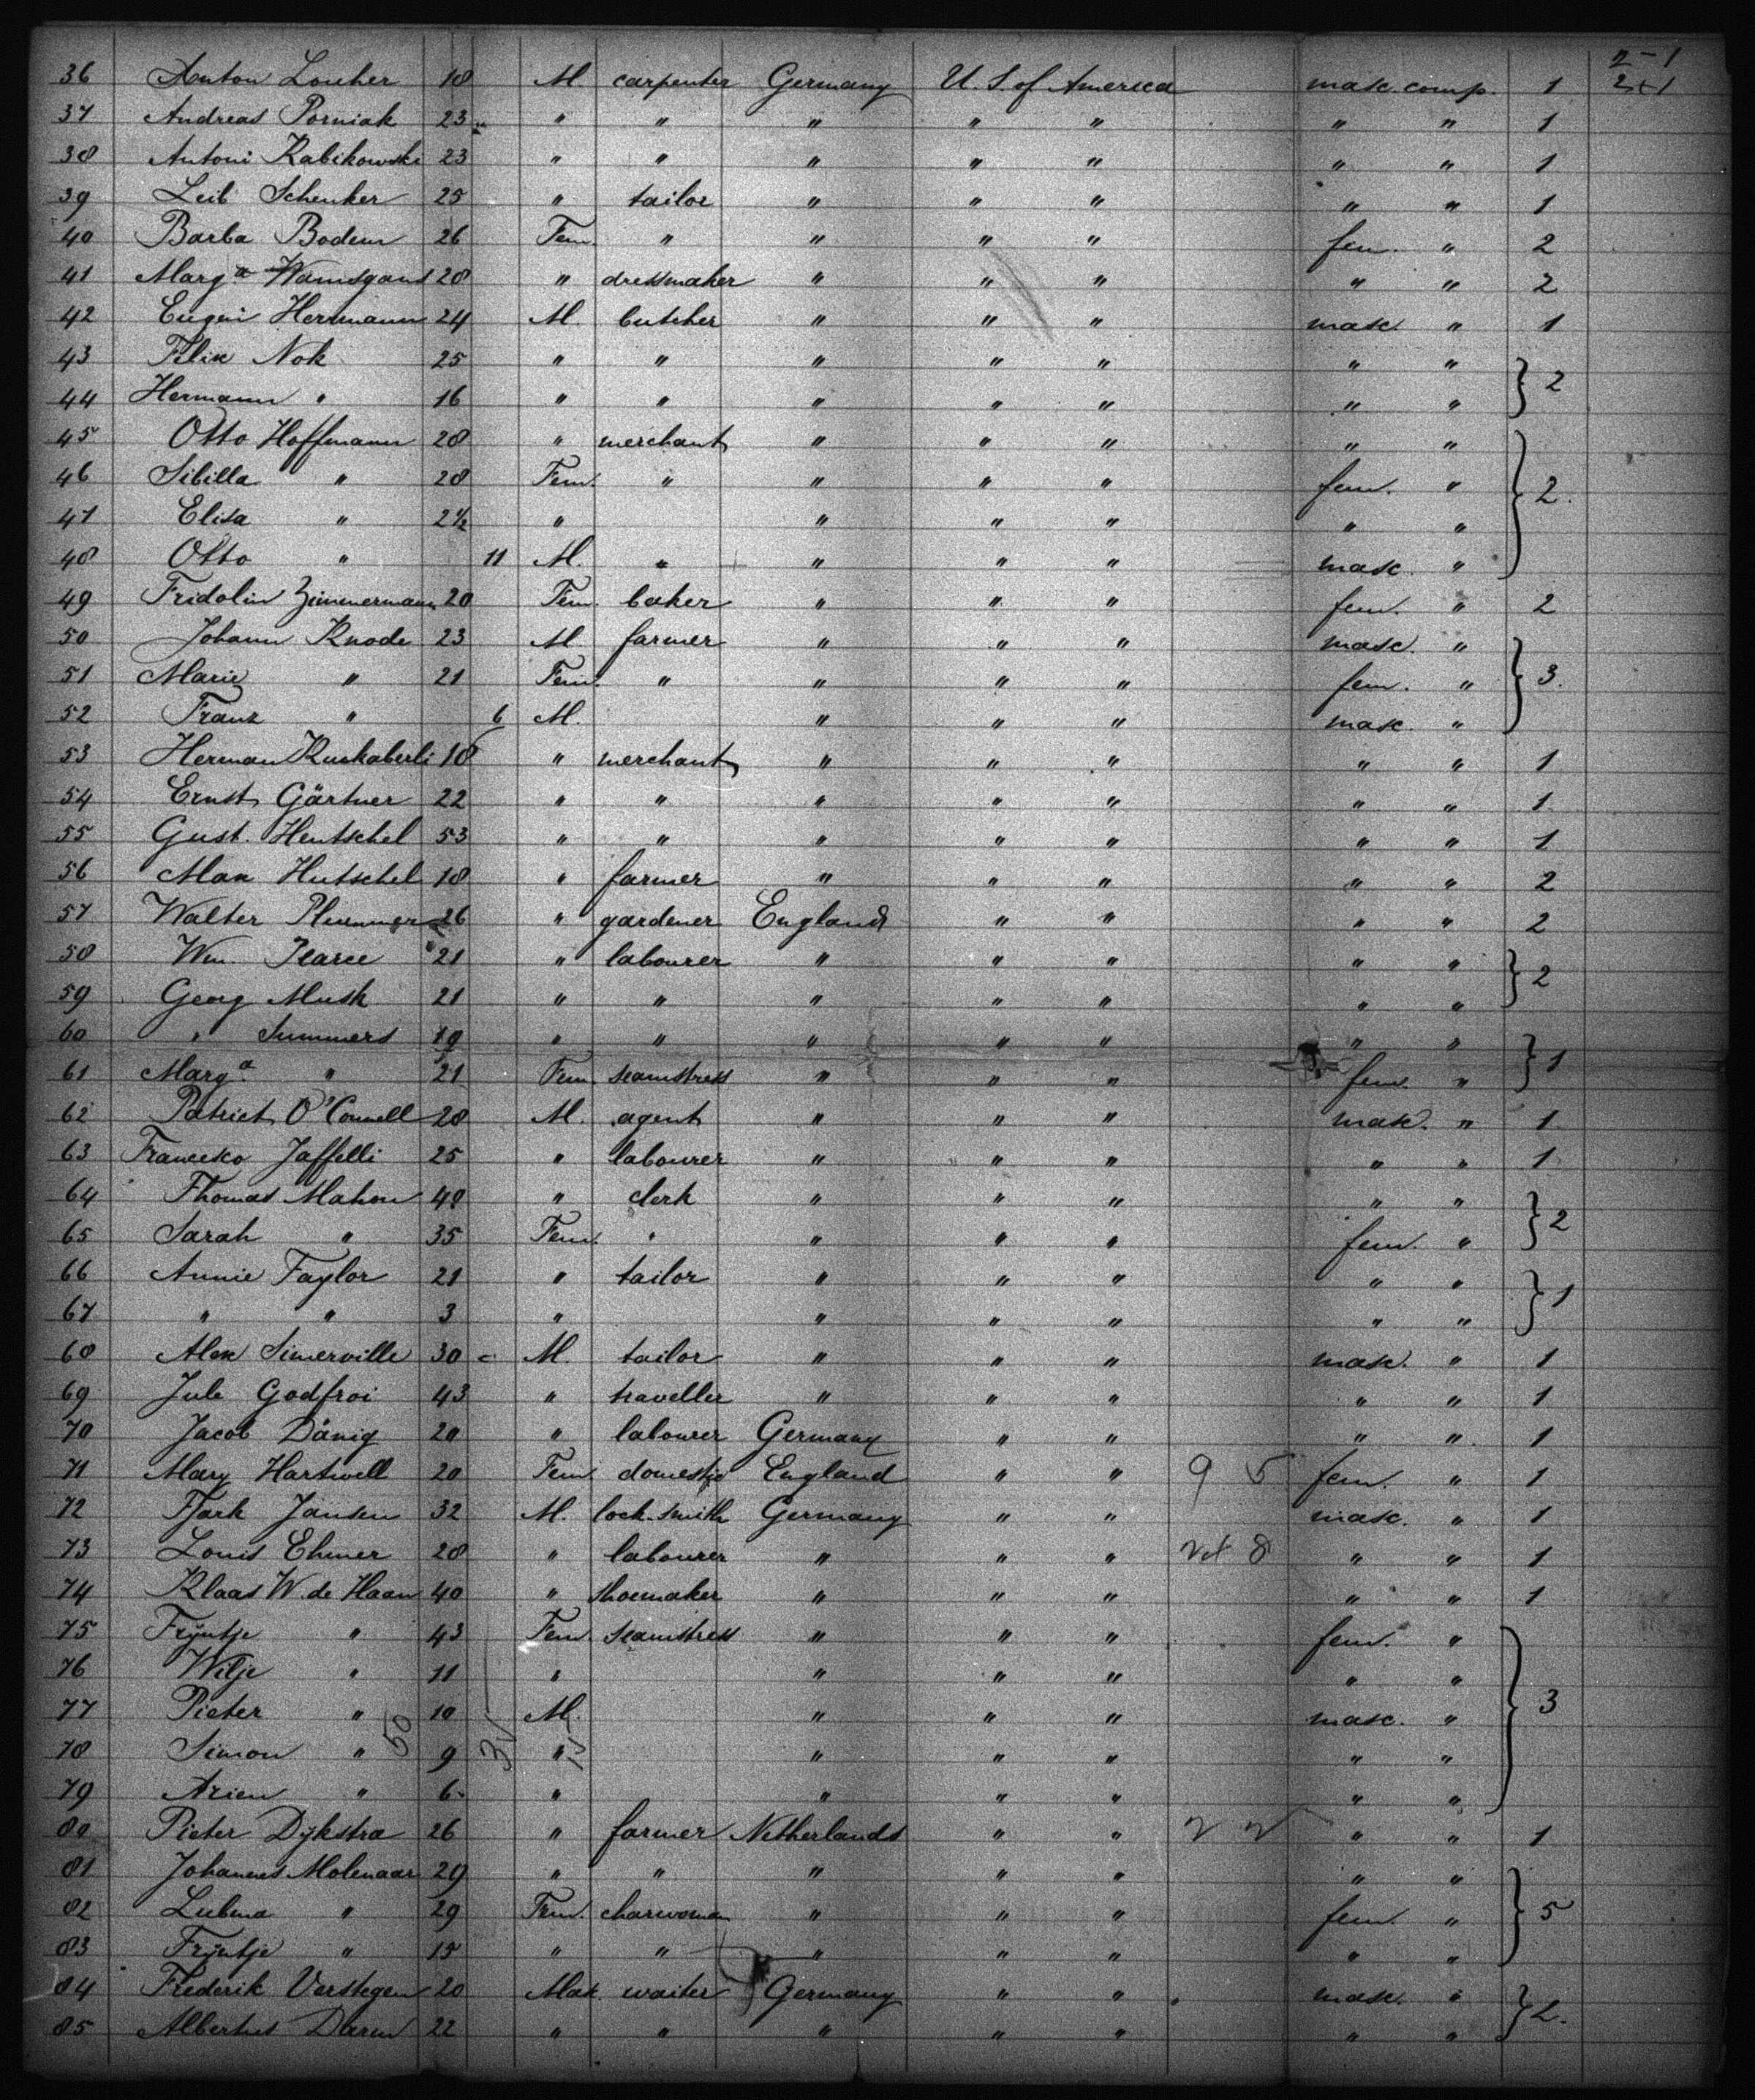 2-1
36 Anton Loucher 18 M. carpenter Germany U. S. of America masc. comp. 1 2+1
37 Andreas Porniak 23 " " " " " " " 1
38 Antoni Rabikowski 23 " " " " " " " 1
39 Leib Schenker 25 " tailor " " " " " 1
40 Barba Bodem 26 Fem. " " " " fem. " 2
41 Marg.a Wamsgans 28 " dressmaker " " " " " 2
42 Eugen Hermann 24 M. butcher " " " masc. " 1
43 Felix Nok 25 " " " " " " "
44 Hermann " 16 " " " " " " " } 2
45 Otto Hoffmann 28 " merchant " " " " "
46 Sibilla " 28 Fem. " " " " fem. " } 2.
47 Elisa " 2½ " " " " " "
48 Otto " 11 M. " " " " masc. "
49 Fridolin Zimmermann 20 Fem. baker " " " fem. " 2
50 Johann Knode 23 M. farmer " " " masc. "
51 Marie " 21 Fem. " " " " fem. " } 3.
52 Franz " 6 M. " " " masc. "
53 Herman Kuskaberli 18 " merchant " " " " " 1
54 Ernst Gärtner 22 " " " " " " " 1
55 Gust. Hentschel 53 " " " " " " " 1
56 Max Hutschel 18 " farmer " " " " " 2
57 Walter Plummer 26 " gardener England " " " " 2
58 Wm. Pearce 21 " labourer " " " " "
59 Georg Musk 21 " " " " " " " } 2
60 " Summers 19 " " " " " " "
61 Marg.a " 21 Fem. seamstress " " " fem. " } 1
62 Patrick O'Connell 28 M. agent " " " masc. " 1
63 Francesco Jaffelli 25 " labourer " " " " " 1
64 Thomas Mahon 48 " clerk " " " " "
65 Sarah " 35 Fem. " " " " fem. " } 2
66 Annie Taylor 21 " tailor " " " " "
67 " " 3 " " " " " " } 1
68 Alex Simerville 30 M. tailor " " " masc. " 1
69 Jule Godfroi 43 " traveller " " " " " 1
70 Jacob Dänig 20 " labourer Germany " " " " 1
71 Mary Hartwell 20 Fem. domestic England " " 9 5 fem. " 1
72 Tjark Jansen 32 M. lock-smith Germany " " masc. " 1
73 Louis Ehmer 28 " labourer " " " 8 " " 1
74 Klaas W. de Haan 40 " shoemaker " " " " " 1
75 Trijntje " 43 Fem. seamstress " " " fem. "
76 Wilje " 11 " " " " " "
77 Pieter " 10 M. " " " masc. " } 3
78 Simon " 50 9 " " " " " "
79 Arien " 6 " " " " " "
80 Pieter Dijkstra 26 " farmer Netherlands " " 2 2 " " 1
81 Johannes Molenaar 29 " " " " " " "
82 Lubina " 29 Fem. charwoman " " " fem. " } 5
83 Trijntje " 15 " " " " " " "
84 Frederik Verstegen 20 Mak. waiter Germany " " masc. "
85 Albertus Darm 22 " " " " " " " } 2.